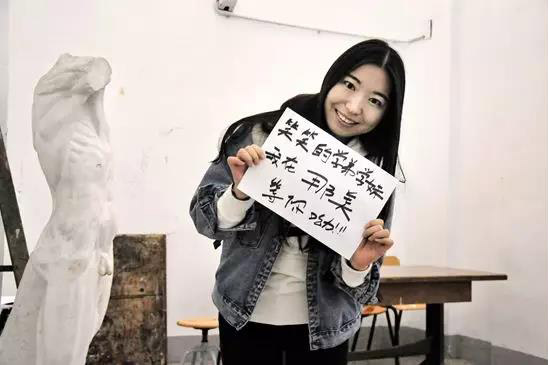 笑笑的学弟学妹
我在那美
等你哟!!!